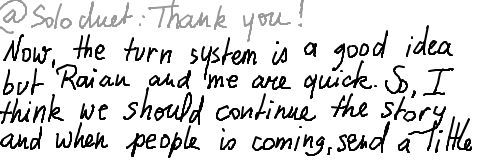 @Soloduet: Thank you!
Now, the turn system is a good idea
but Raian and me are quick. So, I
think we should continue the story
and when people is coming, send a little